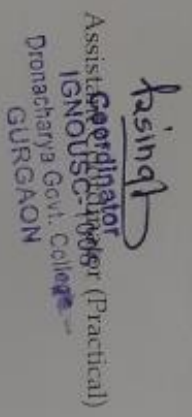 Ksingh
Assistant Coordinator (Practical)
Coordinator
IGNOUSC-1006
Dronacharya Govt. College
GURGAON